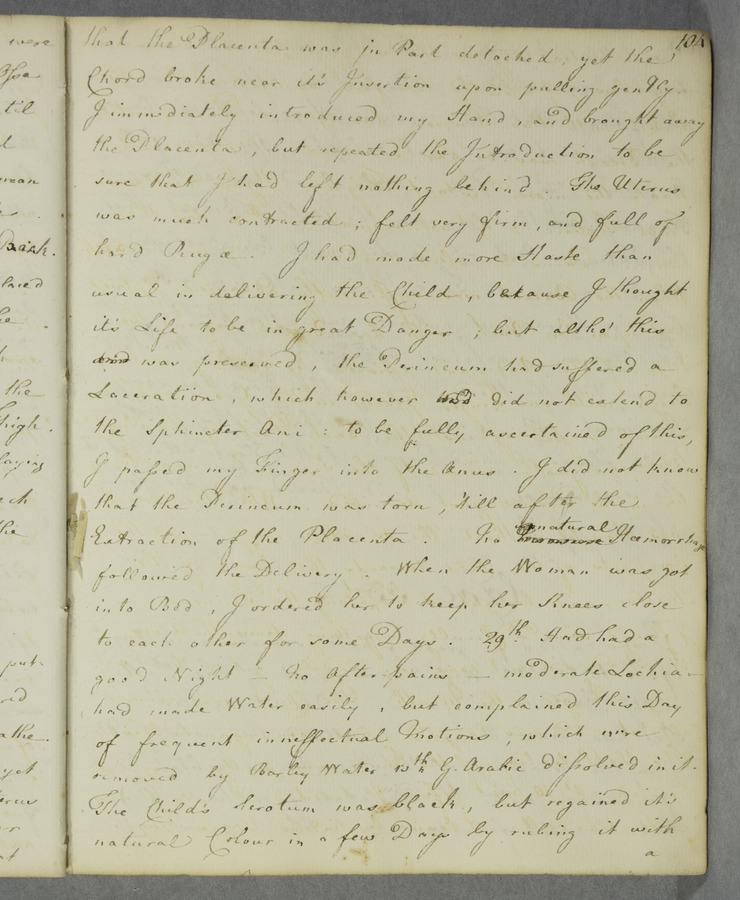 104
that the Placenta was in Part detached, yet the
Chord broke near it's Insertion upon pulling gently.
I immediately introduced my Hand, and brought away
the Placenta, but repeated the Introduction to be
sure that I had left nothing behind. The Uterus
was much contracted; felt very firm, and full of
hard Rugæ. I had made more Haste than
usual in delivering the Child, because I thought
it's Life to be in great Danger; but altho' this
was preserved, the Perineum had suffered a
Laceration, which however did not extend to
the Sphincter Ani: to be fully ascertained of this,
I passed my Finger into the Anus. I did not know
that the Perineum was torn, 'till after the
Extraction of the Placenta. No unnatural Hæmorrhage
followed the Delivery. When the Woman was got
into Bed, I ordered her to keep her Knees close
to each other for some Days. 29th. Had had a
good Night — no After-pains — moderate Lochia —
had made Water easily, but complained this Day
of frequent inneffectual Motions, which were
removed by Barley Water wth G. Arabic dissolved in it.
The Child's Scrotum was black, but regained it's
natural Colour in a few Days by rubing it with
a